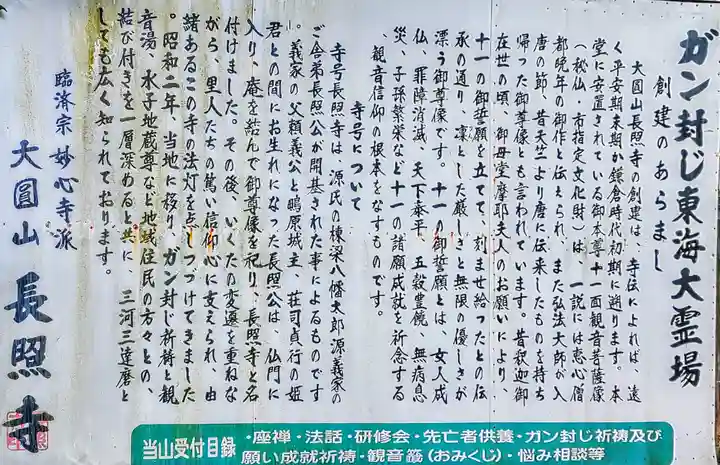 ガン封じ東海大霊場
創建のあらまし
大圓山長照寺の創建は、寺伝によれば、遠
く平安期末期か鎌倉時代初期に遡ります。本
堂に安置されている御本尊十一面観音菩薩像
(秘仏・市指定文化財)は、一説には恵心僧
都晩年の御作と伝えられ、また弘法大師が入
唐の節、昔天竺より唐に伝来したものを持ち
帰った御尊像とも言われています。昔釈迦御
在世の頃、御母堂摩耶夫人のお願いにより、
十一の御誓願を立てて、刻ませ給ったとの伝
承の通り、凛とした厳しさと無限の優しさが
漂う御尊像です。十一の御誓願とは、女人成
仏、罪障消滅、天下泰平、五穀豊饒、無病息
災、子孫繁栄など十一の諸願成就を祈念する
、観音信仰の根本をなすものです。
寺号について
寺号長照寺は、源氏の棟梁八幡太郎源義家の
ご舎弟長照公が開基された事によるものです
。義家の父頼義公と鴫原城主、荘司貞行の姫
君との間にお生れになった長照公は、仏門に
入り、庵を結んで御尊像を祀り、長照寺と名
付けました。その後、いくたの変遷を重ねな
がら、里人たちの篤い信仰心に支えられ、由
緒あるこの寺の法灯を点しつづけてきました
。昭和二年、当地に移り、ガン封じ祈祷と観
音湯、水子地蔵尊など地域住民の方々との、
結び付きを一層深めると共に、三河三達磨と
しても広く知られております。
臨済宗妙心寺派
大圓山 長照寺
当山受付目録
・座禅・法話・研修会・先亡者供養・ガン封じ祈祷及び
願い成就祈祷・観音籤(おみくじ)・悩み相談等